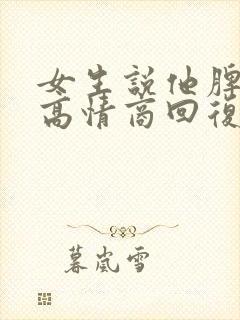 女生說他脾
高情商回復
暮嵐雪